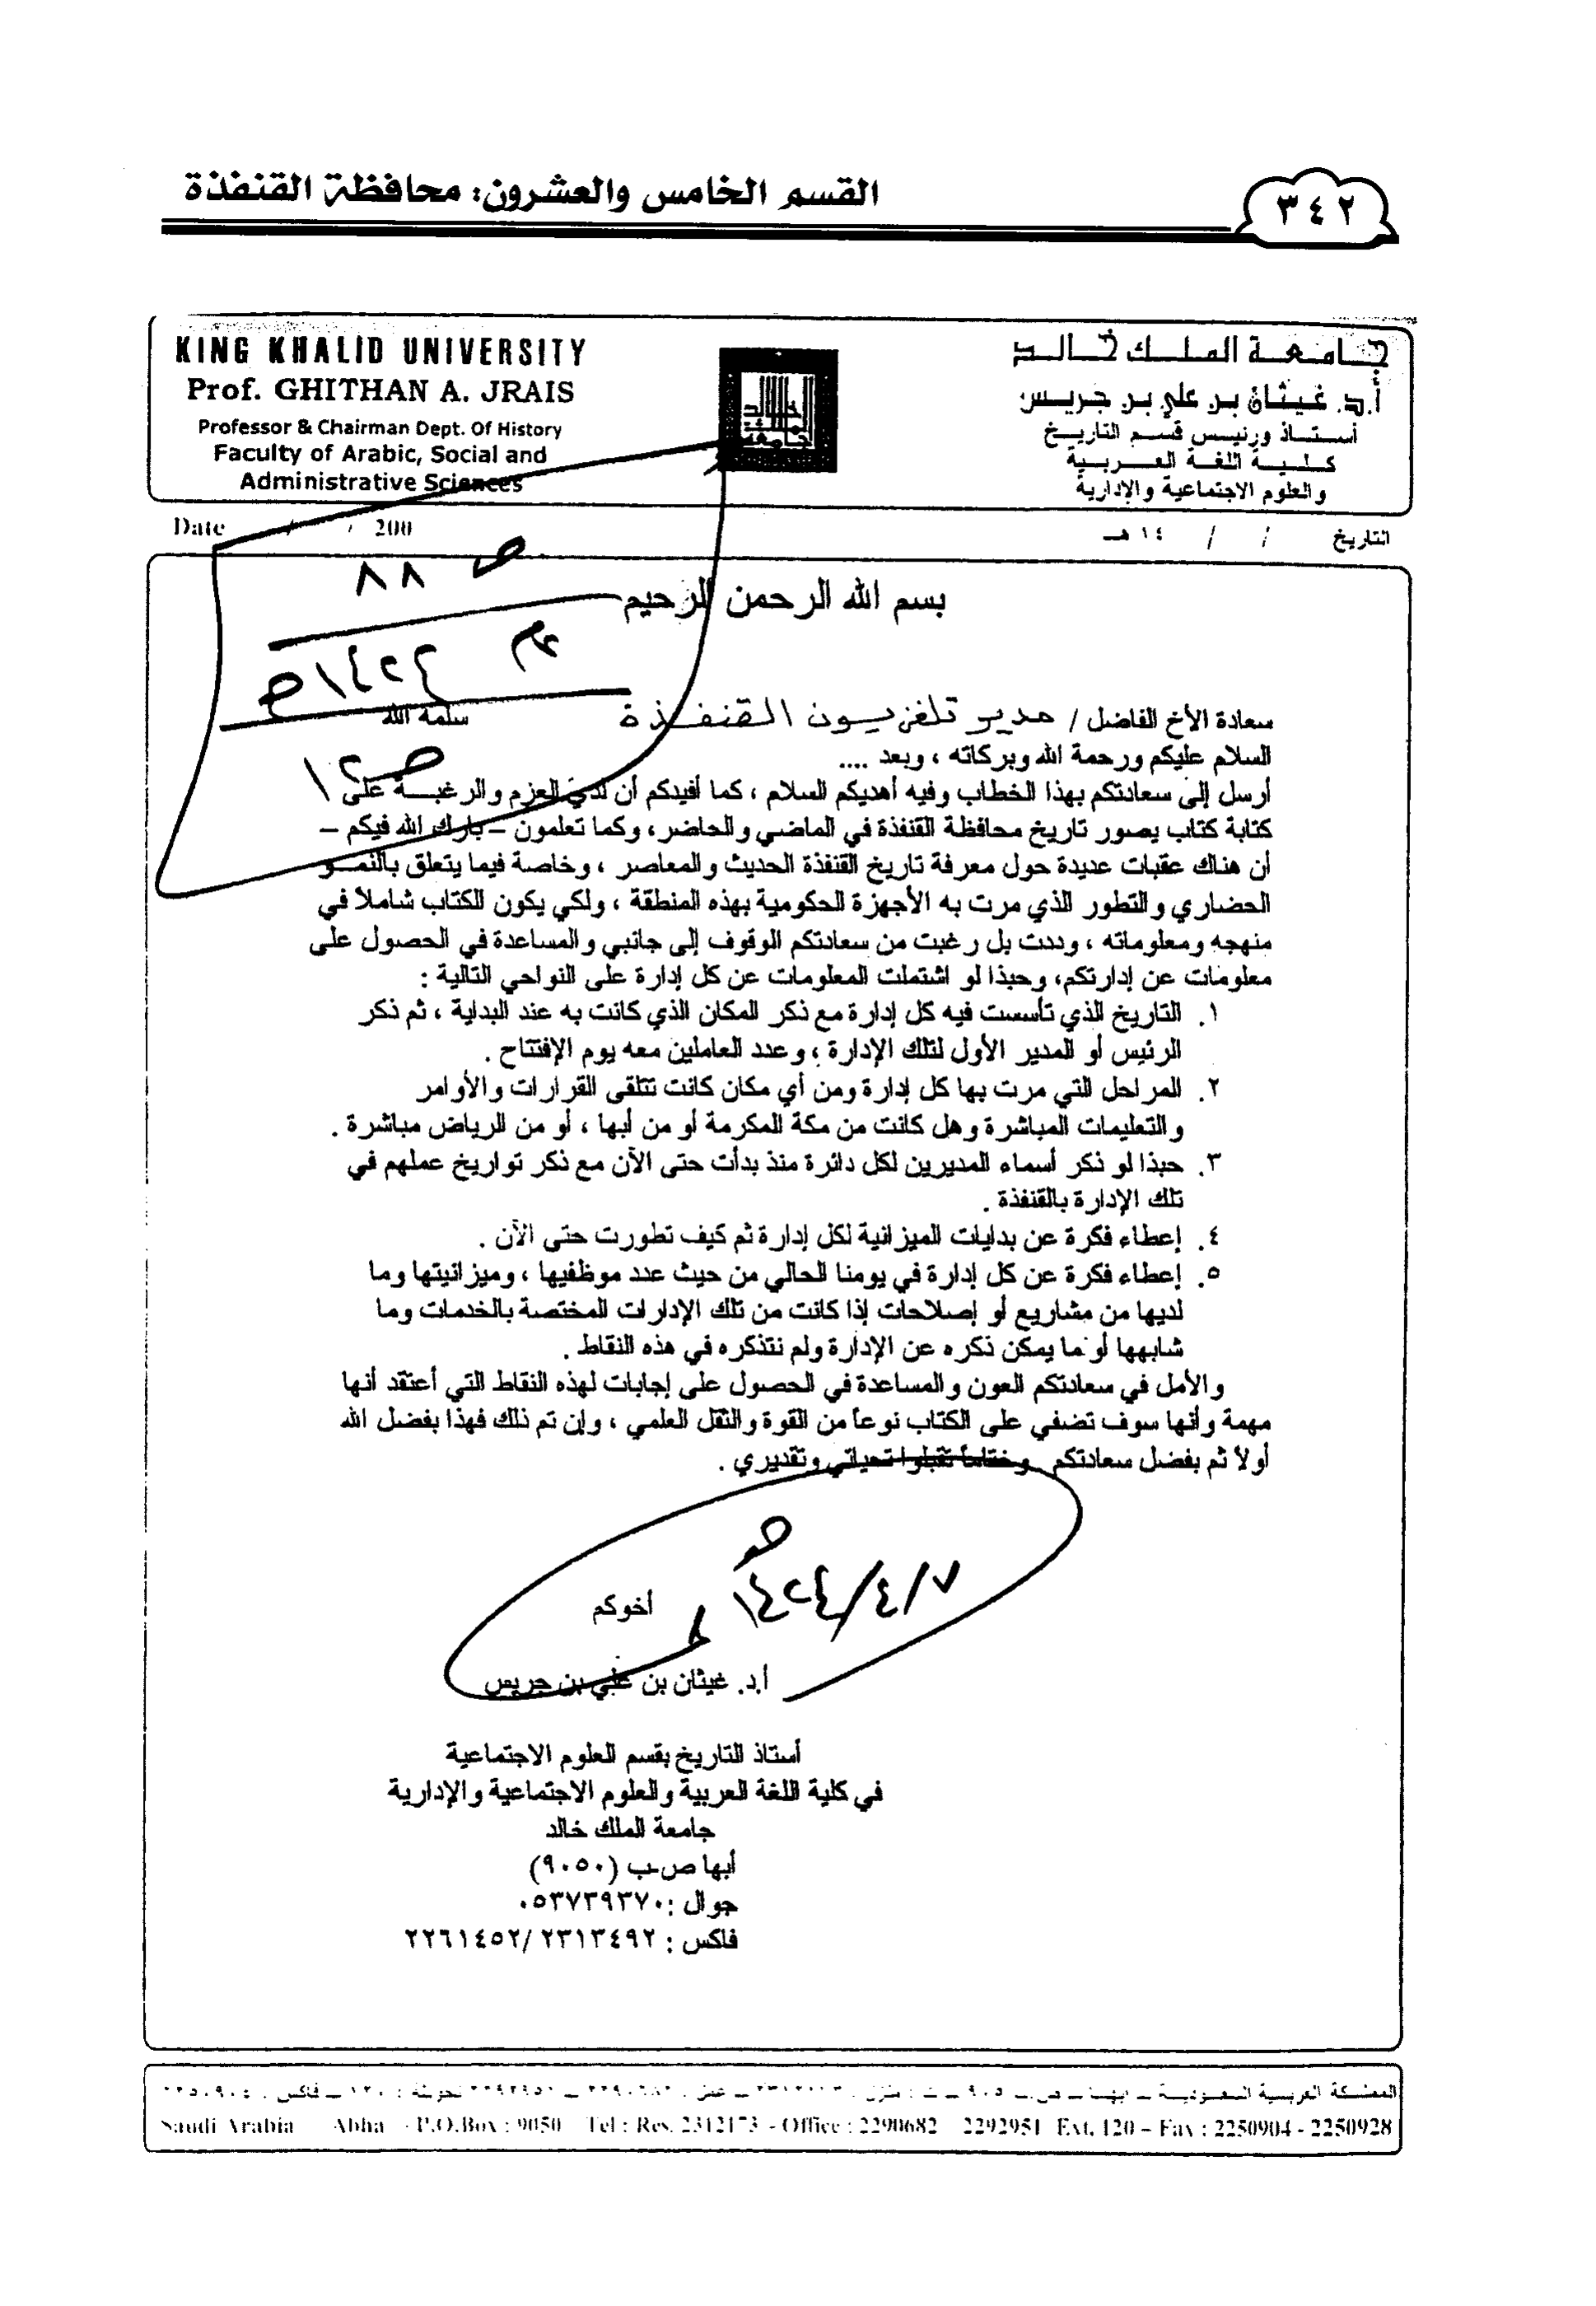 القسم الخامس والعشرون: محافظة القنفذة
٣٤٢
KING KHALID UNIVERSITY
Prof. GHITHAN A. JRAIS
Professor & Chairman Dept. Of History
Faculty of Arabic, Social and
Administrative Sciences
جامعة الملك خالد
أ.د. غيثان بن علي بن جريس
أستاذ ورئيس قسم التاريخ
كلية اللغة العربية
والعلوم الاجتماعية والإدارية
جامعة الملك خالد
Date / / 200
التاريخ / / ١٤هـ
ص ٨٨
بسم الله الرحمن الرحيم
١٤٢٤هـ
سعادة الأخ الفاضل / مدير تلفزيون القنفذة سلمه الله
السلام عليكم ورحمة الله وبركاته ، وبعد ....
أرسل إلى سعادتكم بهذا الخطاب وفيه أهديكم السلام ، كما أفيدكم أن لديَ العزم والرغبة على
كتابة كتاب يصور تاريخ محافظة القنفذة في الماضي والحاضر، وكما تعلمون – بارك الله فيكم –
أن هناك عقبات عديدة حول معرفة تاريخ القنفذة الحديث والمعاصر ، وخاصة فيما يتعلق بالنمو
الحضاري والتطور الذي مرت به الأجهزة الحكومية بهذه المنطقة ، ولكي يكون الكتاب شاملاً في
منهجه ومعلوماته ، وددت بل رغبت من سعادتكم الوقوف إلى جانبي والمساعدة في الحصول على
معلومات عن إدارتكم، وحبذا لو اشتملت المعلومات عن كل إدارة على النواحي التالية :
١. التاريخ الذي تأسست فيه كل إدارة مع ذكر المكان الذي كانت به عند البداية ، ثم ذكر
الرئيس أو المدير الأول لتلك الإدارة ، وعدد العاملين معه يوم الإفتتاح .
٢. المراحل التي مرت بها كل إدارة ومن أي مكان كانت تتلقى القرارات والأوامر
والتعليمات المباشرة وهل كانت من مكة المكرمة أو من أبها ، أو من الرياض مباشرة .
٣. حبذا لو ذكر أسماء المديرين لكل دائرة منذ بدأت حتى الآن مع ذكر تواريخ عملهم في
تلك الإدارة بالقنفذة .
٤. إعطاء فكرة عن بدايات الميزانية لكل إدارة ثم كيف تطورت حتى الآن .
٥. إعطاء فكرة عن كل إدارة في يومنا الحالي من حيث عدد موظفيها ، وميزانيتها وما
لديها من مشاريع أو إصلاحات إذا كانت من تلك الإدارات المختصة بالخدمات وما
شابهها أو ما يمكن ذكره عن الإدارة ولم نتذكره في هذه النقاط .
والأمل في سعادتكم العون والمساعدة في الحصول على إجابات لهذه النقاط التي أعتقد أنها
مهمة وأنها سوف تضفي على الكتاب نوعاً من القوة والثقل العلمي ، وإن تم ذلك فهذا بفضل الله
أولاً ثم بفضل سعادتكم وختاماً تقبلوا تحياتي وتقديري .
١٤٢٤/٤/٧هـ
أخوكم
أ.د. غيثان بن علي بن جريس
أستاذ التاريخ بقسم العلوم الاجتماعية
في كلية اللغة العربية والعلوم الاجتماعية والإدارية
جامعة الملك خالد
أبها ص-ب (٩٠٥٠)
جوال :٠٥٣٧٣٩٣٧٠
فاكس : ٢٣١٣٤٩٢ /٢٢٦١٤٥٢
المملكة العربية السعودية – أبها
Saudi Arabia Abha - P.O.Box : 9050 Tel : Res. 2312173 - Office : 2290682 2292951 Ext. 120 – Fax : 2250904 - 2250928